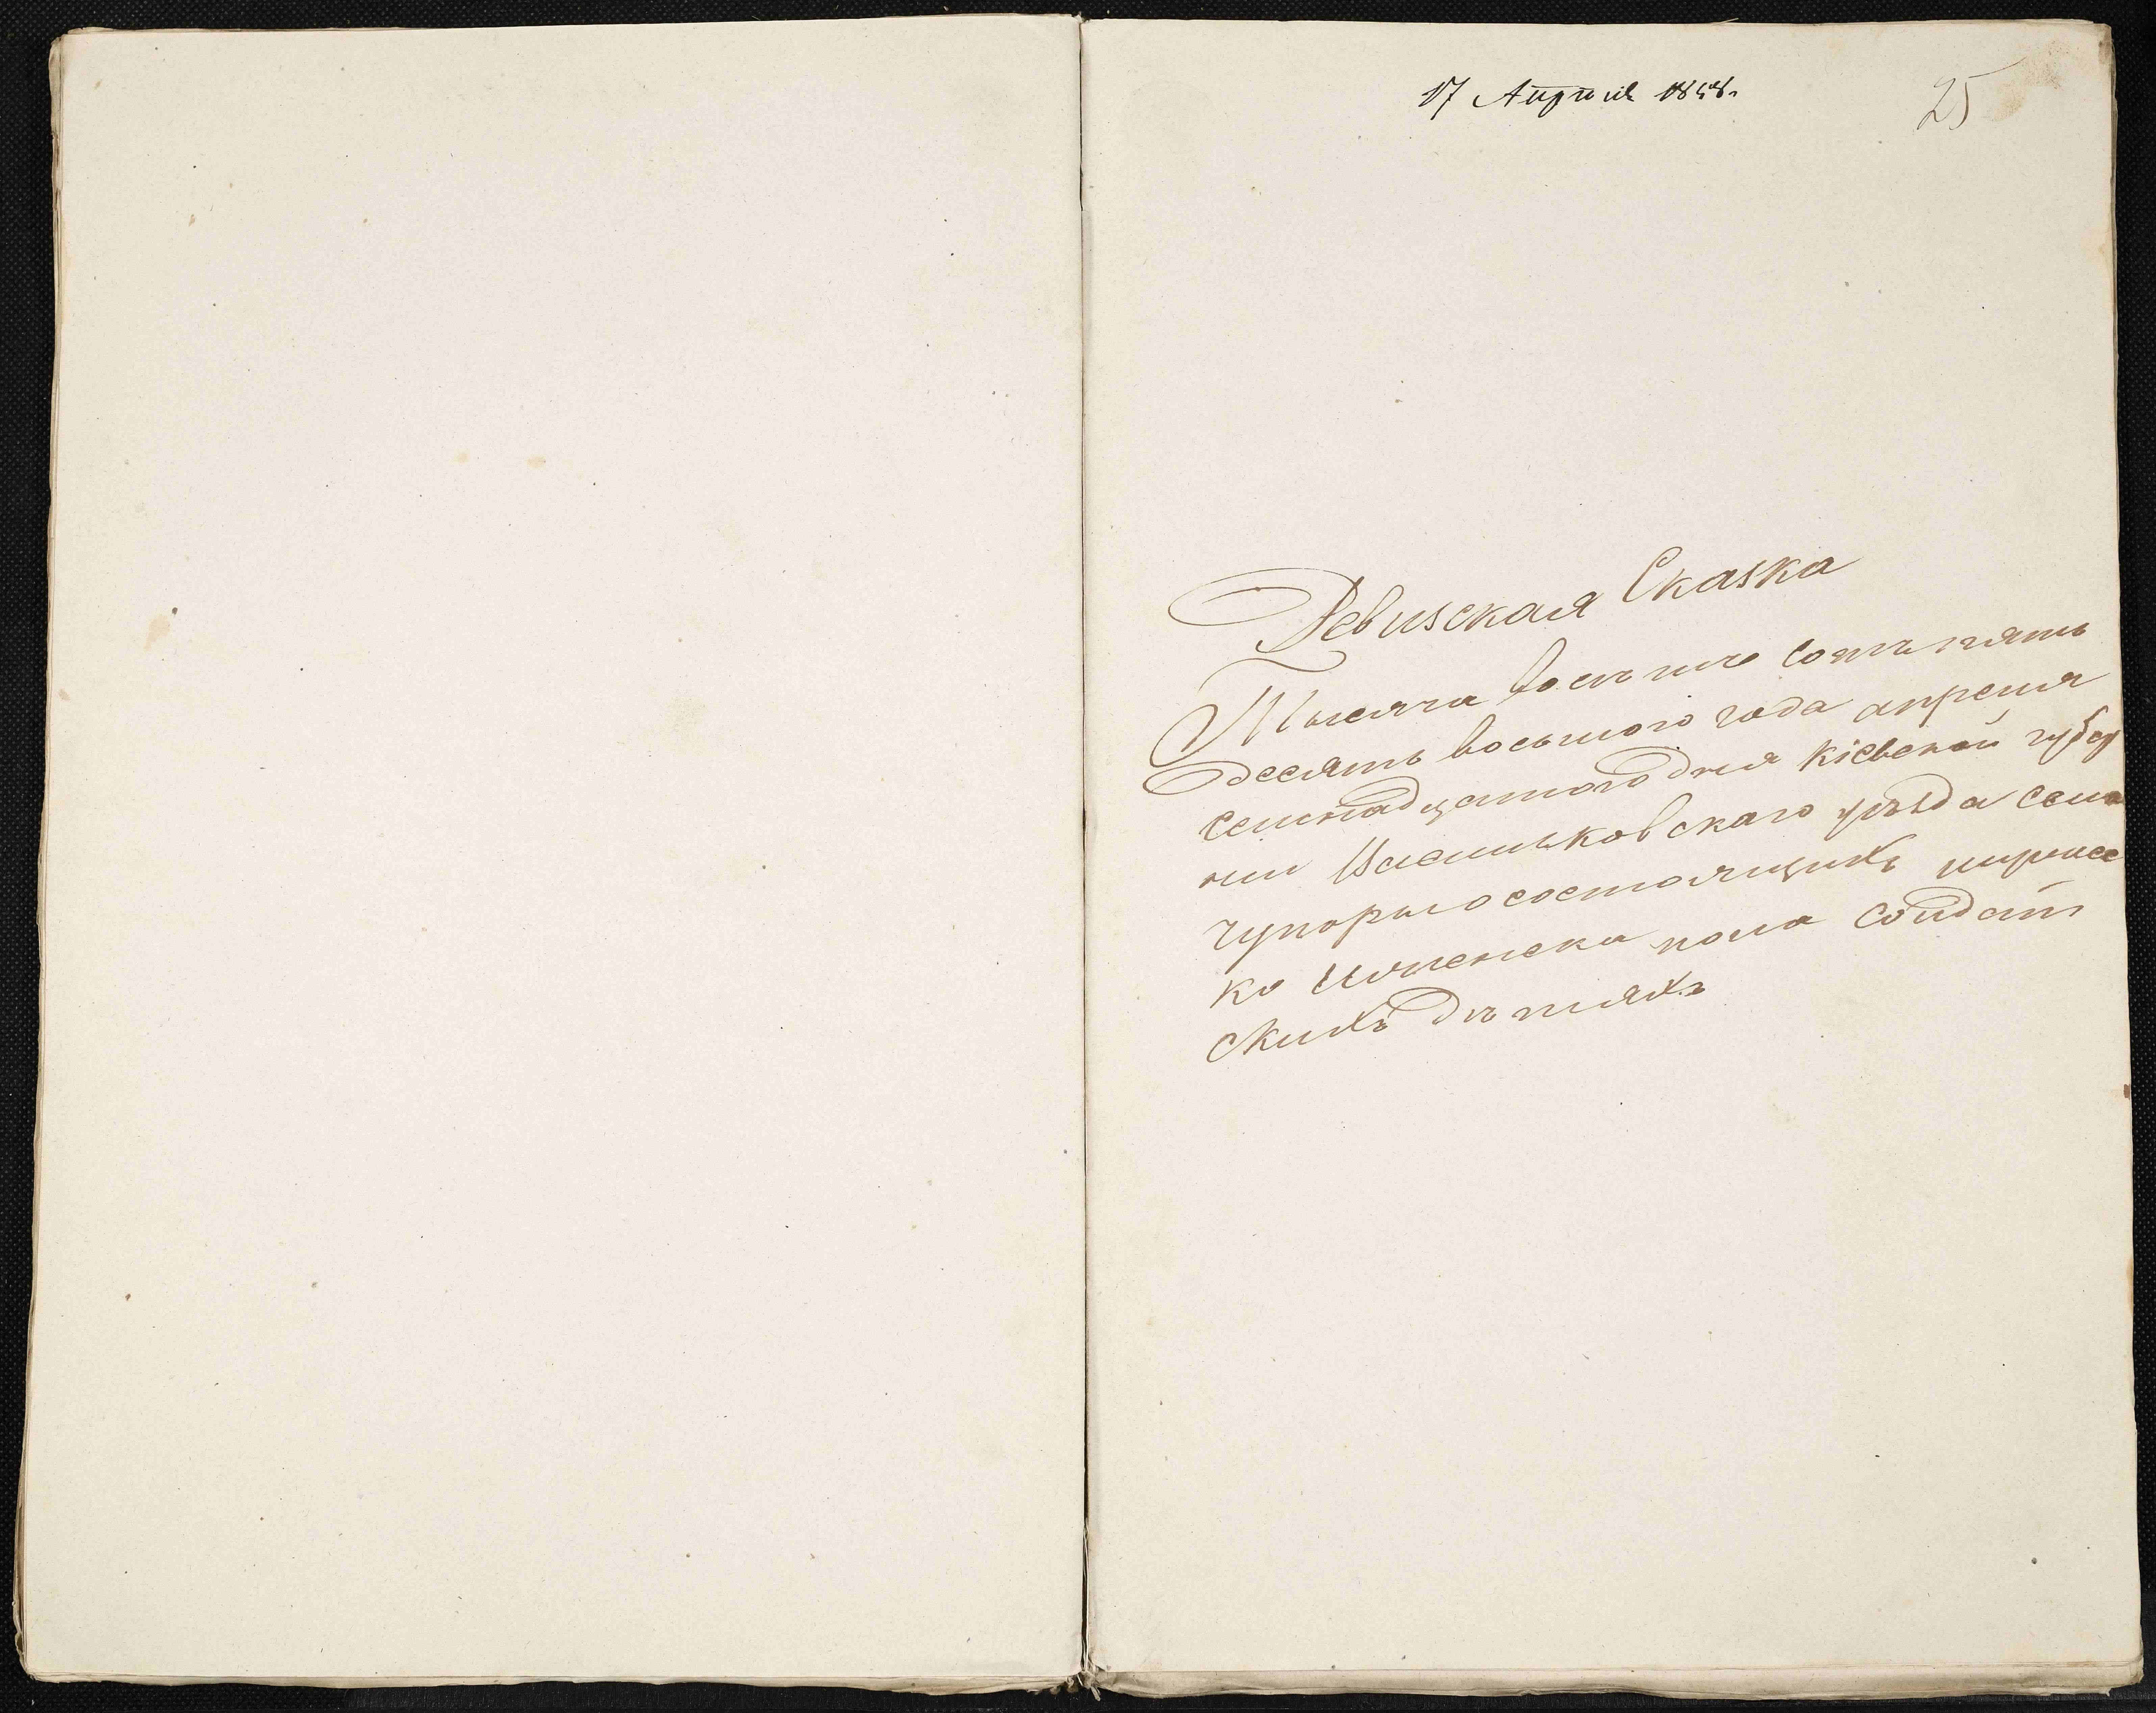 17 Апрѣля 1858.
25
Ревизская Сказка
Тысяча восѣмѣ сотъ пять
десять восьмого года апреля
семнадцатого дня Кіевской губер
нии Василькоѣскаго уѣзда села
Чупоры о состоящихъ
женска пола солдат
скихъ дѣтяхъ